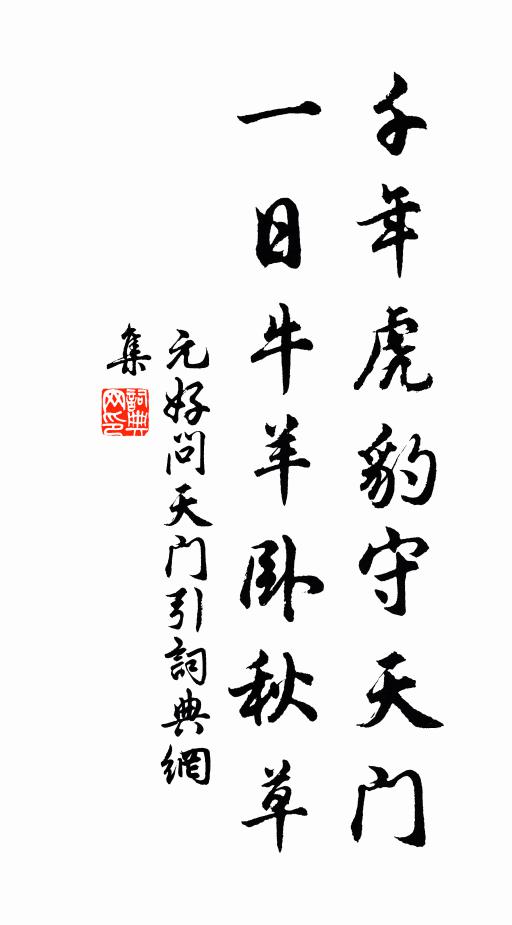 千年虎豹守天門
一日牛羊卧秋草
元好問天門引詞典網
集
詞典
网印